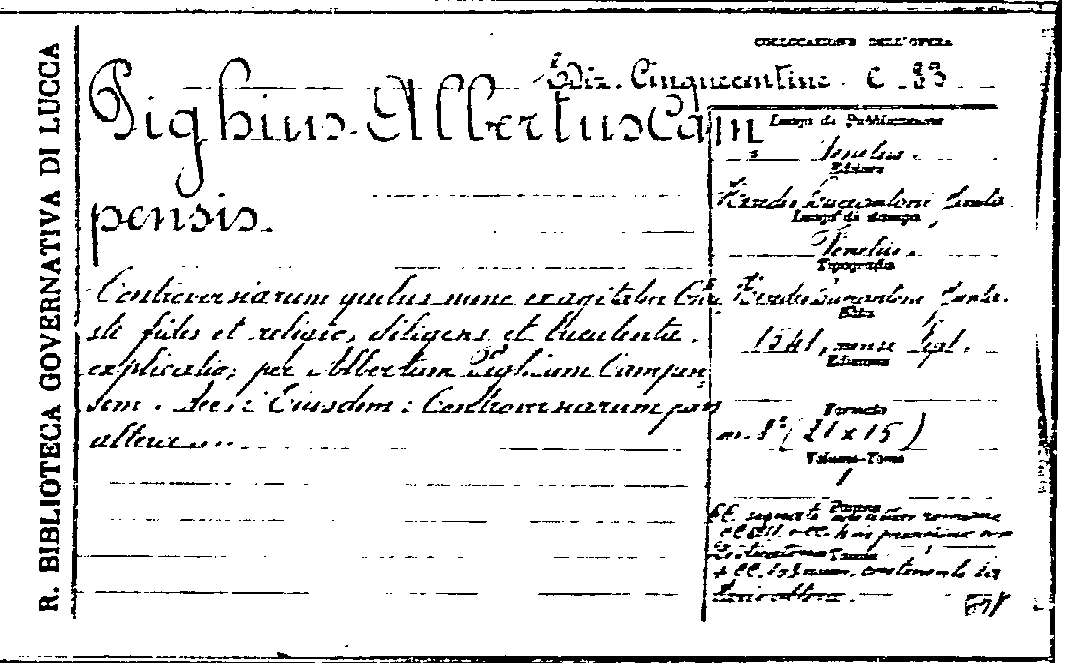 R. BIBLIOTECA GOVERNATIVA DI LUCCA
COLLOCAZIONE DELL'OPERA
Diz. Cinquecentine. C. 33
Pighius Albertus Cam
pensis.
Controversiarum quibus nunc exagitatur Chri
sti fides et religio, diligens et luculenta
explicatio; per Albertum Pighium Campen
sem. Sec: Eiusdem: Controversiarum pars
altera...
Luogo di Pubblicazione
Venetiis.
Editore
Heredes Lucantonii Junta.
Luogo di stampa
Venetiis.
Tipografia
Heredes Lucantonii Junta.
Data
1541, mense
Edizione
Formato
in. 8° (21 x 15)
Volume-Tomo
1
Pagine
CC. numero romano
Tavole
+ CC. 103 num. contenente la